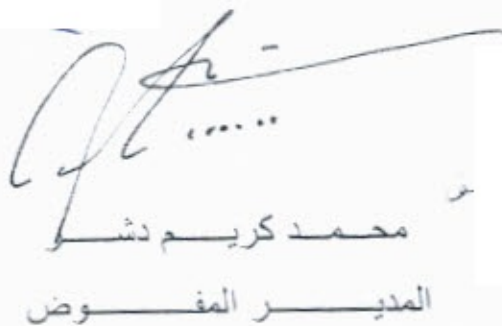 محمد كريم دشر
المدير المفوض